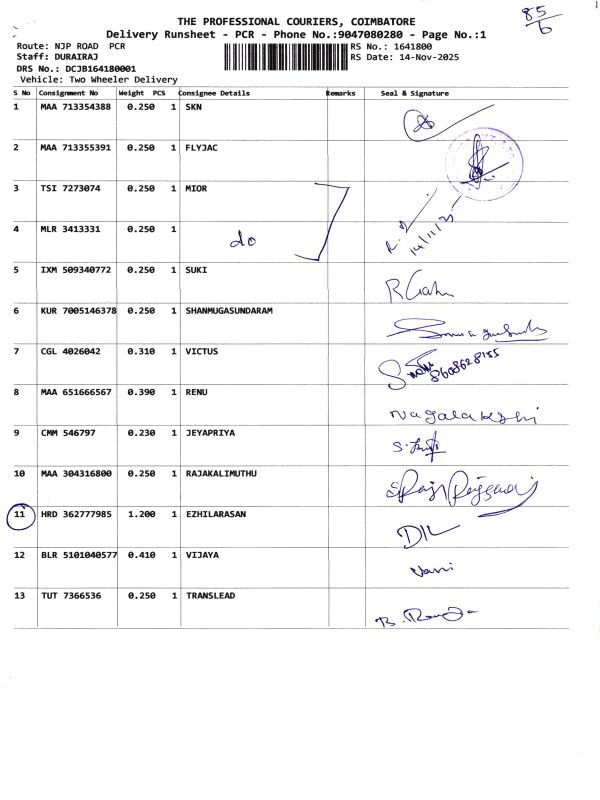 85
6
THE PROFESSIONAL COURIERS, COIMBATORE
Delivery Runsheet - PCR - Phone No.:9047080280 - Page No.:1
Route: NJP ROAD PCR
RS No.: 1641800
Staff: DURAIRAJ
RS Date: 14-Nov-2025
DRS No.: DCJB164180001
Vehicle: Two Wheeler Delivery
S No Consignment No Weight PCS Consignee Details Remarks Seal & Signature
1 MAA 713354388 0.250 1 SKN
2 MAA 713355391 0.250 1 FLYJAC
3 TSI 7273074 0.250 1 MIOR
4 MLR 3413331 0.250 1 do
14/11/25
5 IXM 509340772 0.250 1 SUKI
6 KUR 7005146378 0.250 1 SHANMUGASUNDARAM
7 CGL 4026042 0.310 1 VICTUS
8608628155
8 MAA 651666567 0.390 1 RENU
Nagalakshi
9 CMM 546797 0.230 1 JEYAPRIYA
10 MAA 304316800 0.250 1 RAJAKALIMUTHU
11 HRD 362777985 1.200 1 EZHILARASAN
12 BLR 5101040577 0.410 1 VIJAYA
Vani
13 TUT 7366536 0.250 1 TRANSLEAD